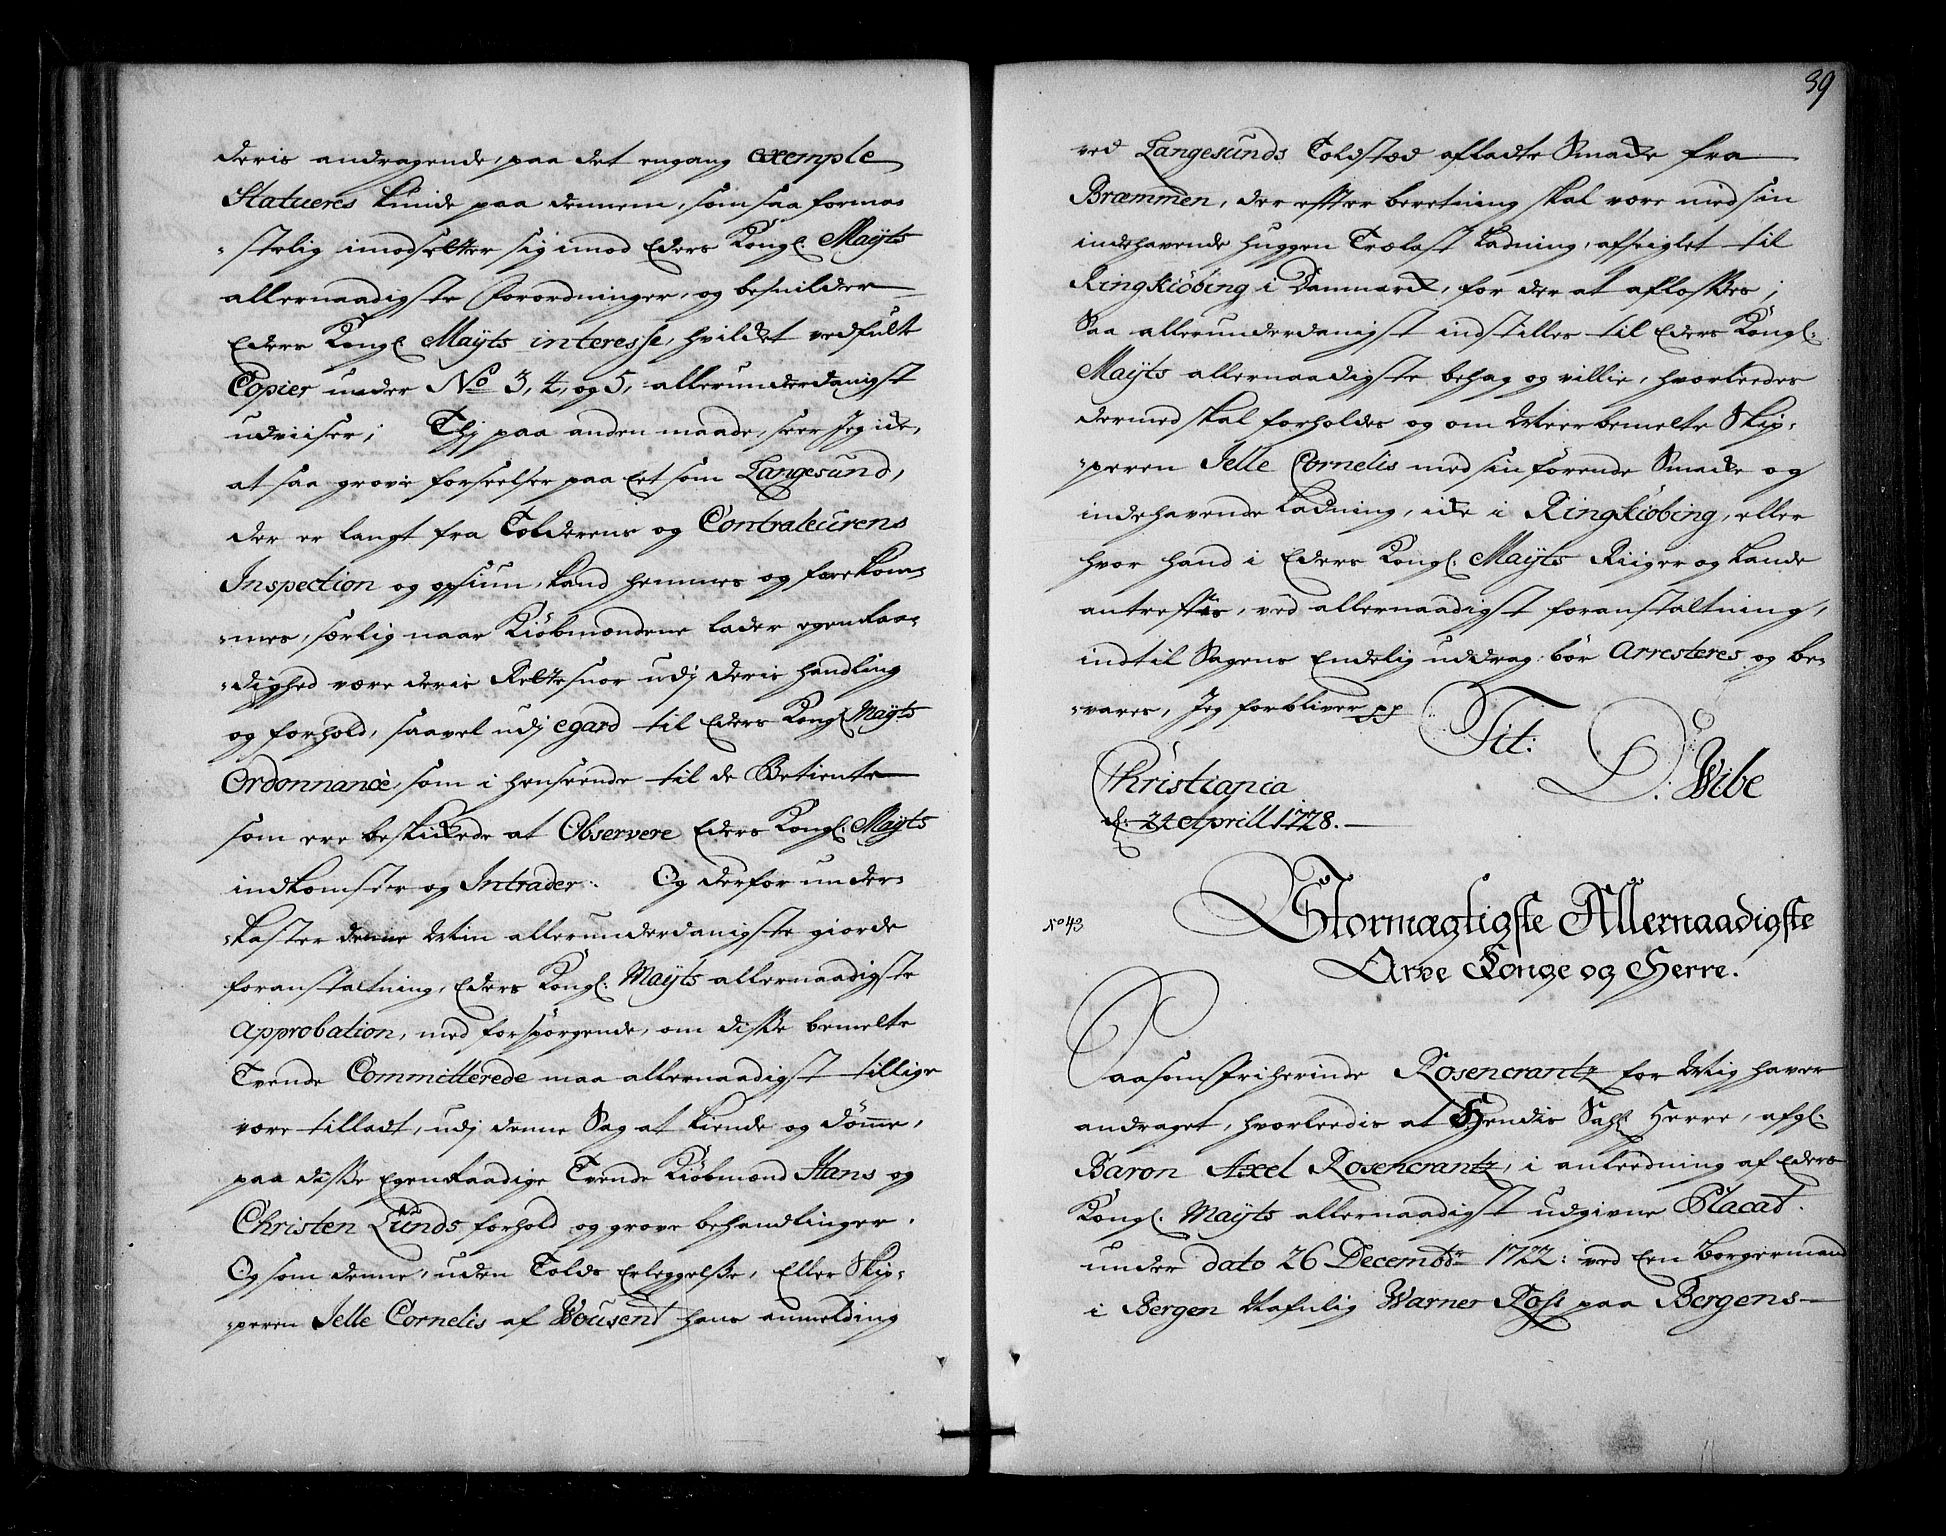 deris andragende, paa det engang exemple
Statueres kunde paa dennem, som saa formas-
-stelig imodsetter sig imod Eders Kongl. Mayts
allernaadigste forordninger, og besnilder
Eders Kongl Mayts interesse, hvilcket vedfulte
Copier under No 3, 4, og 5, allerunderdanigst
udviiser; Thj paa anden maade, seer Jeg icke,
at saa grove forseelser paa Eet som Langesund,
der er langt fra Tolderens og Contraleurens
Inspection og opsiun, kand hemmes og forekom-
-mes, særlig naar Kiøbmændene lader egenraa-
-dighed være deris Rettesnor udj deris handling
og forhold, saavel udj egard til Eders Kongl Mayts
Ordonnance, som i henseende til de Betiente
som ere beskickede at Observere Eders Kongl. Mayts
indkomster og Intrader. Og derfor under-
-kaster denne Min allerunderdanigste giorde
foranstaltning, Eders Kongl. Mayts allernaadigste
Approbation, med forspørgende, om disse bemelte
Tvende Committerede maa allernaadigst tillige
være tilladt, udj denne Sag at kiende og dømme,
paa disse Egenraadige Tvende Kiøbmænd Hans og
Christen Lunds forhold og grove behandlinger.
Og som denne, uden Tolds Erleggelse, Eller Skip-
-peren Jelle Cornelis af Wousend hans anmelding
39
ved Langesunds Toldstæd afladte Smacke fra
Bræmmen, der efter beretning skal være med sin
indehavende huggen Trælast Ladning, afseiglet til
Ringkiøbing i Danmarck, for der at aflosses;
Saa allerunderdanigst indstilles til Eders Kongl.
Mayts allernaadigste behag og villie, hvorleedes
dermed skal forholdes og om Meerbemelte Skip-
-peren Jelle Cornelis med sin førende Smacke og
indehavende Ladning, icke i Ringkiøbing, eller
hvor hand i Eders Kongl. Mayts Riiger og Lande
antreffes, ved allernaadigst foranstaltning,
indtil Sagens Endelig uddrag bør Arresteres og be-
-vares, Jeg forbliver pp
Tit:
D: Wibe
Christiania
d. 24 Aprill 1728.
No 43
Stormægtigste Allernaadigste
Arve Konge og Herre.
Paasom Friherinde Rosencrantz for Mig haver
andraget, hvorleedis at Hendis Sahl. Herre, afgl.
Baron Axel Rosencrantz, i anleedning af Eders
Kongl. Mayts allernaadigst udgivne Placat
under dato 26 Decembr 1722: ved Een Borgermand
i Bergen Nafnlig Warner Rose paa Bergens